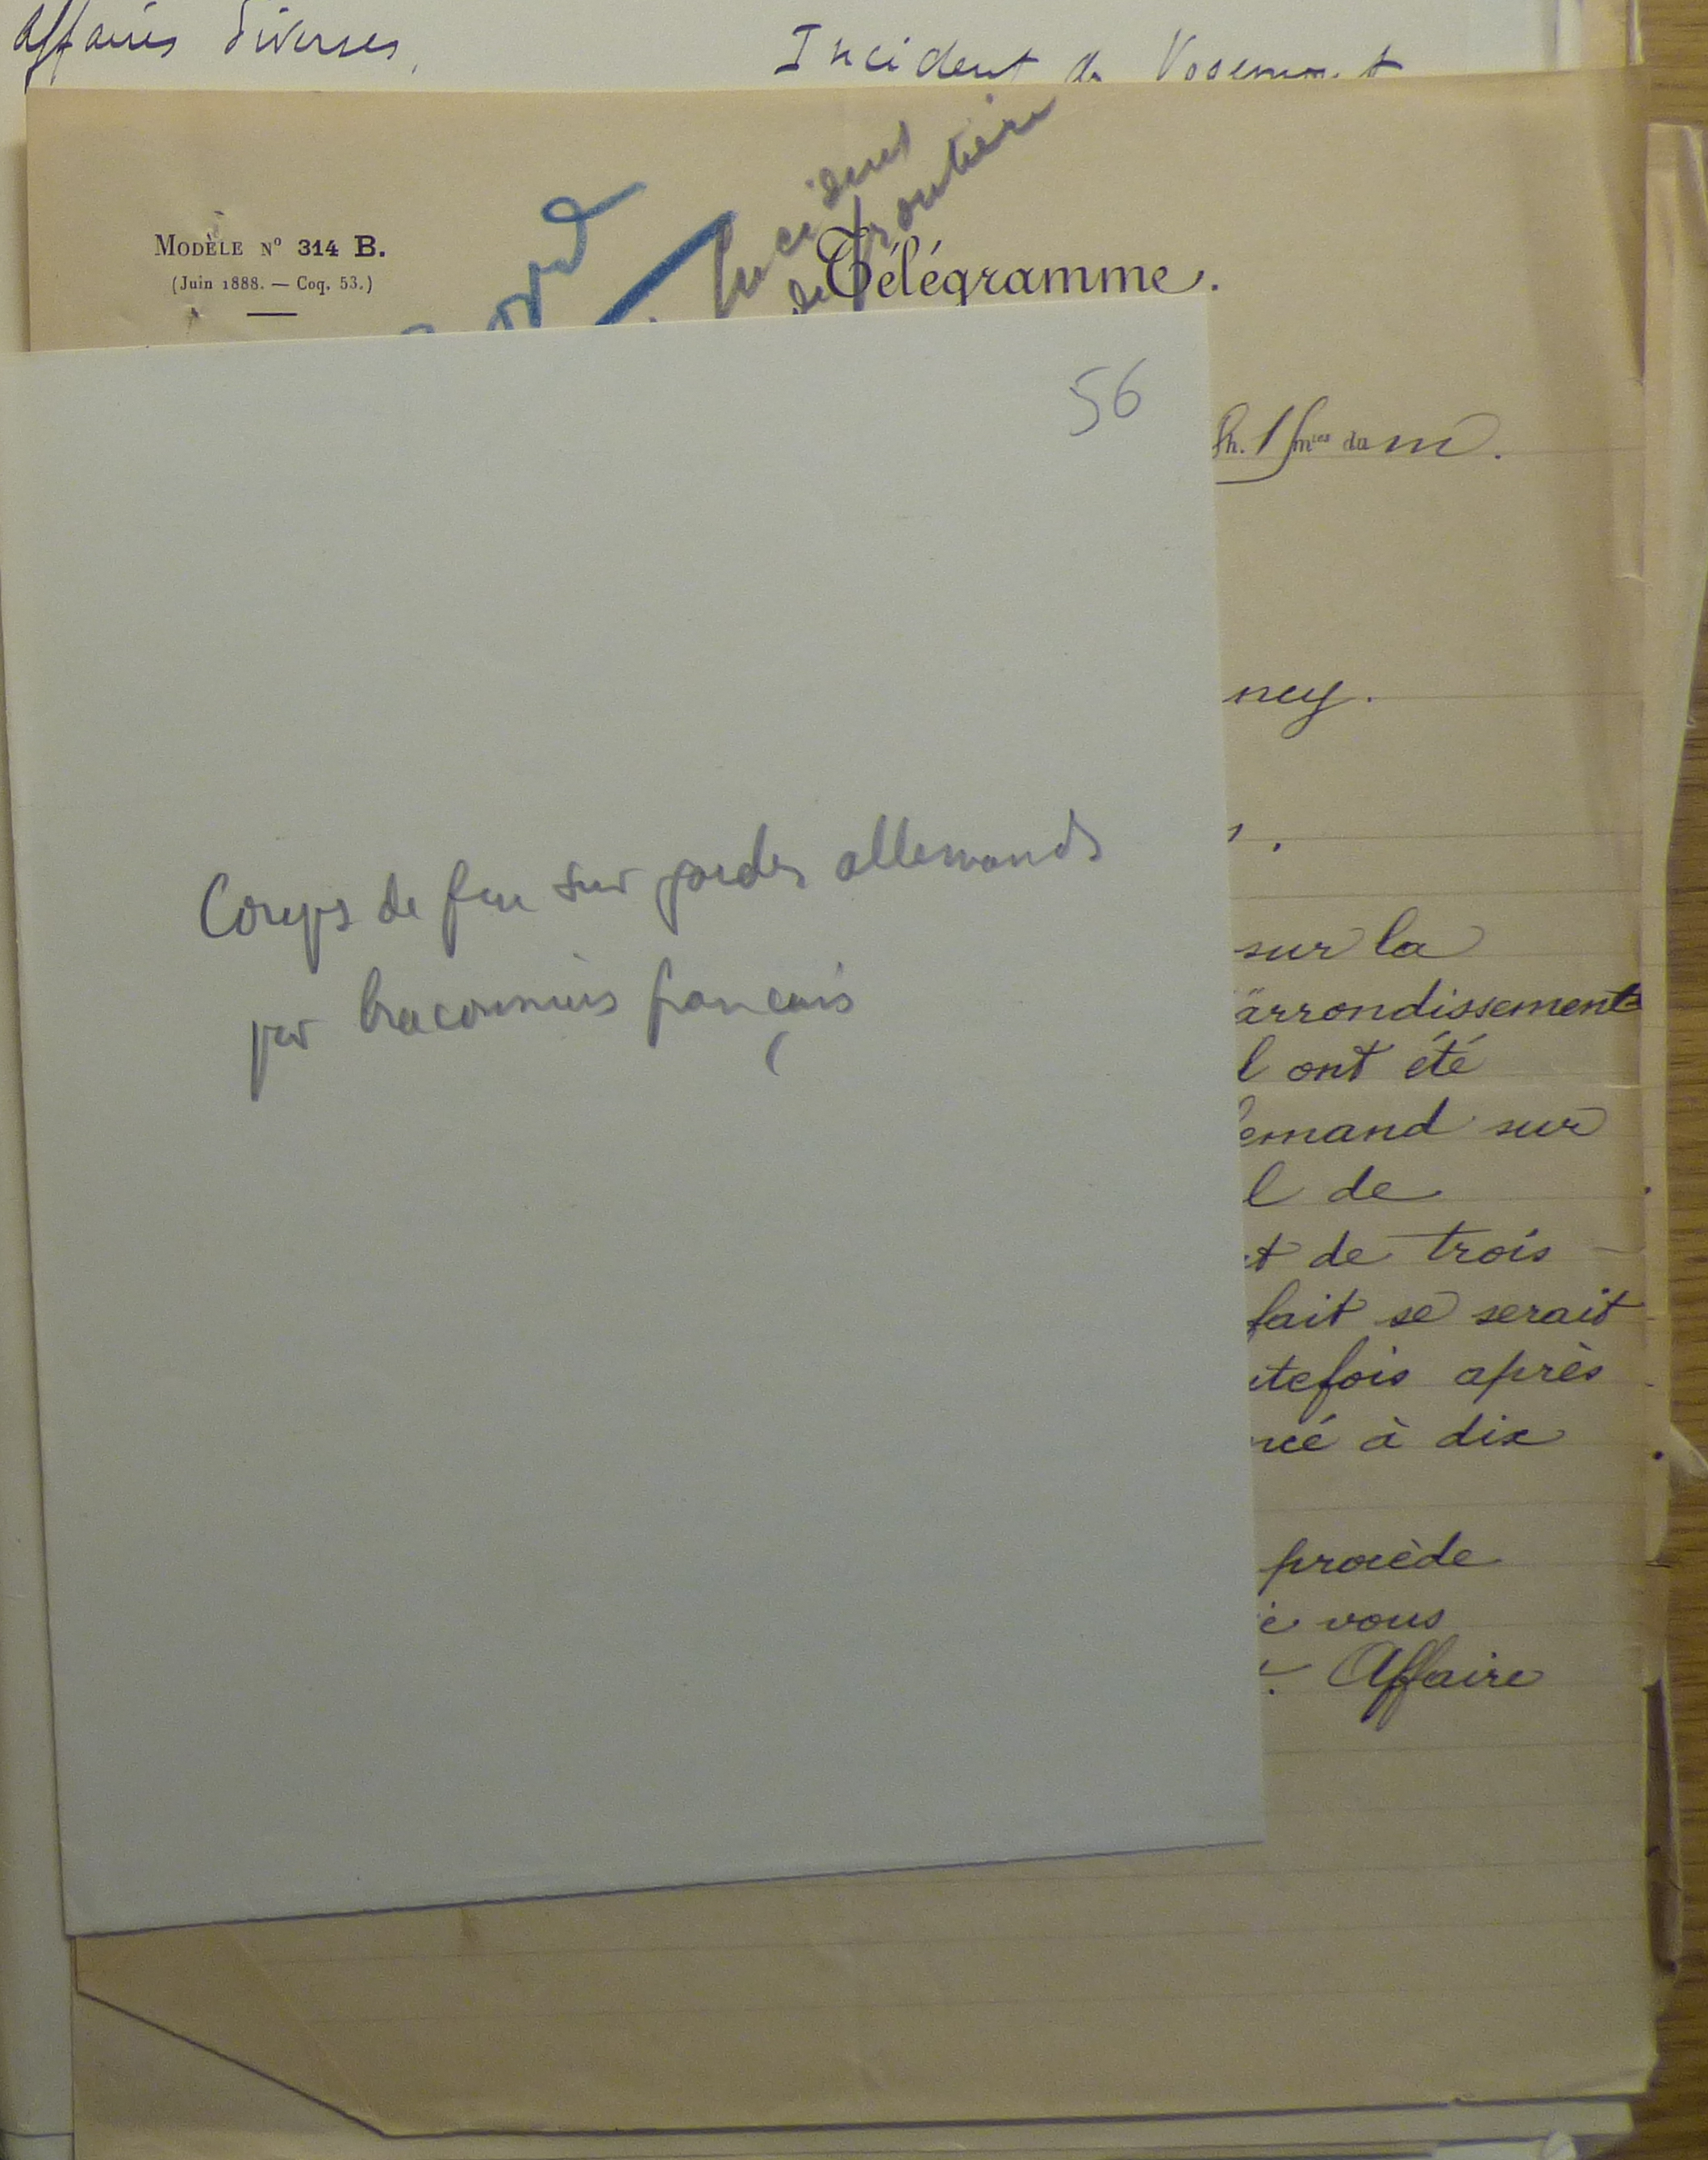 Affaires diverses,
Incident de
Incident
de frontière
MODÈLE Nº 314 B.
(Juin 1888. — Coq. 53.)
Télégramme.
56
h. 15 mtes du m.
ney.
Coups de feu sur gardes allemands
par braconniers français
sur la
arrondissement
l ont été
emand sur
l de
t de trois
fait se serait
tefois après
à dix
procède
vous
Affaire